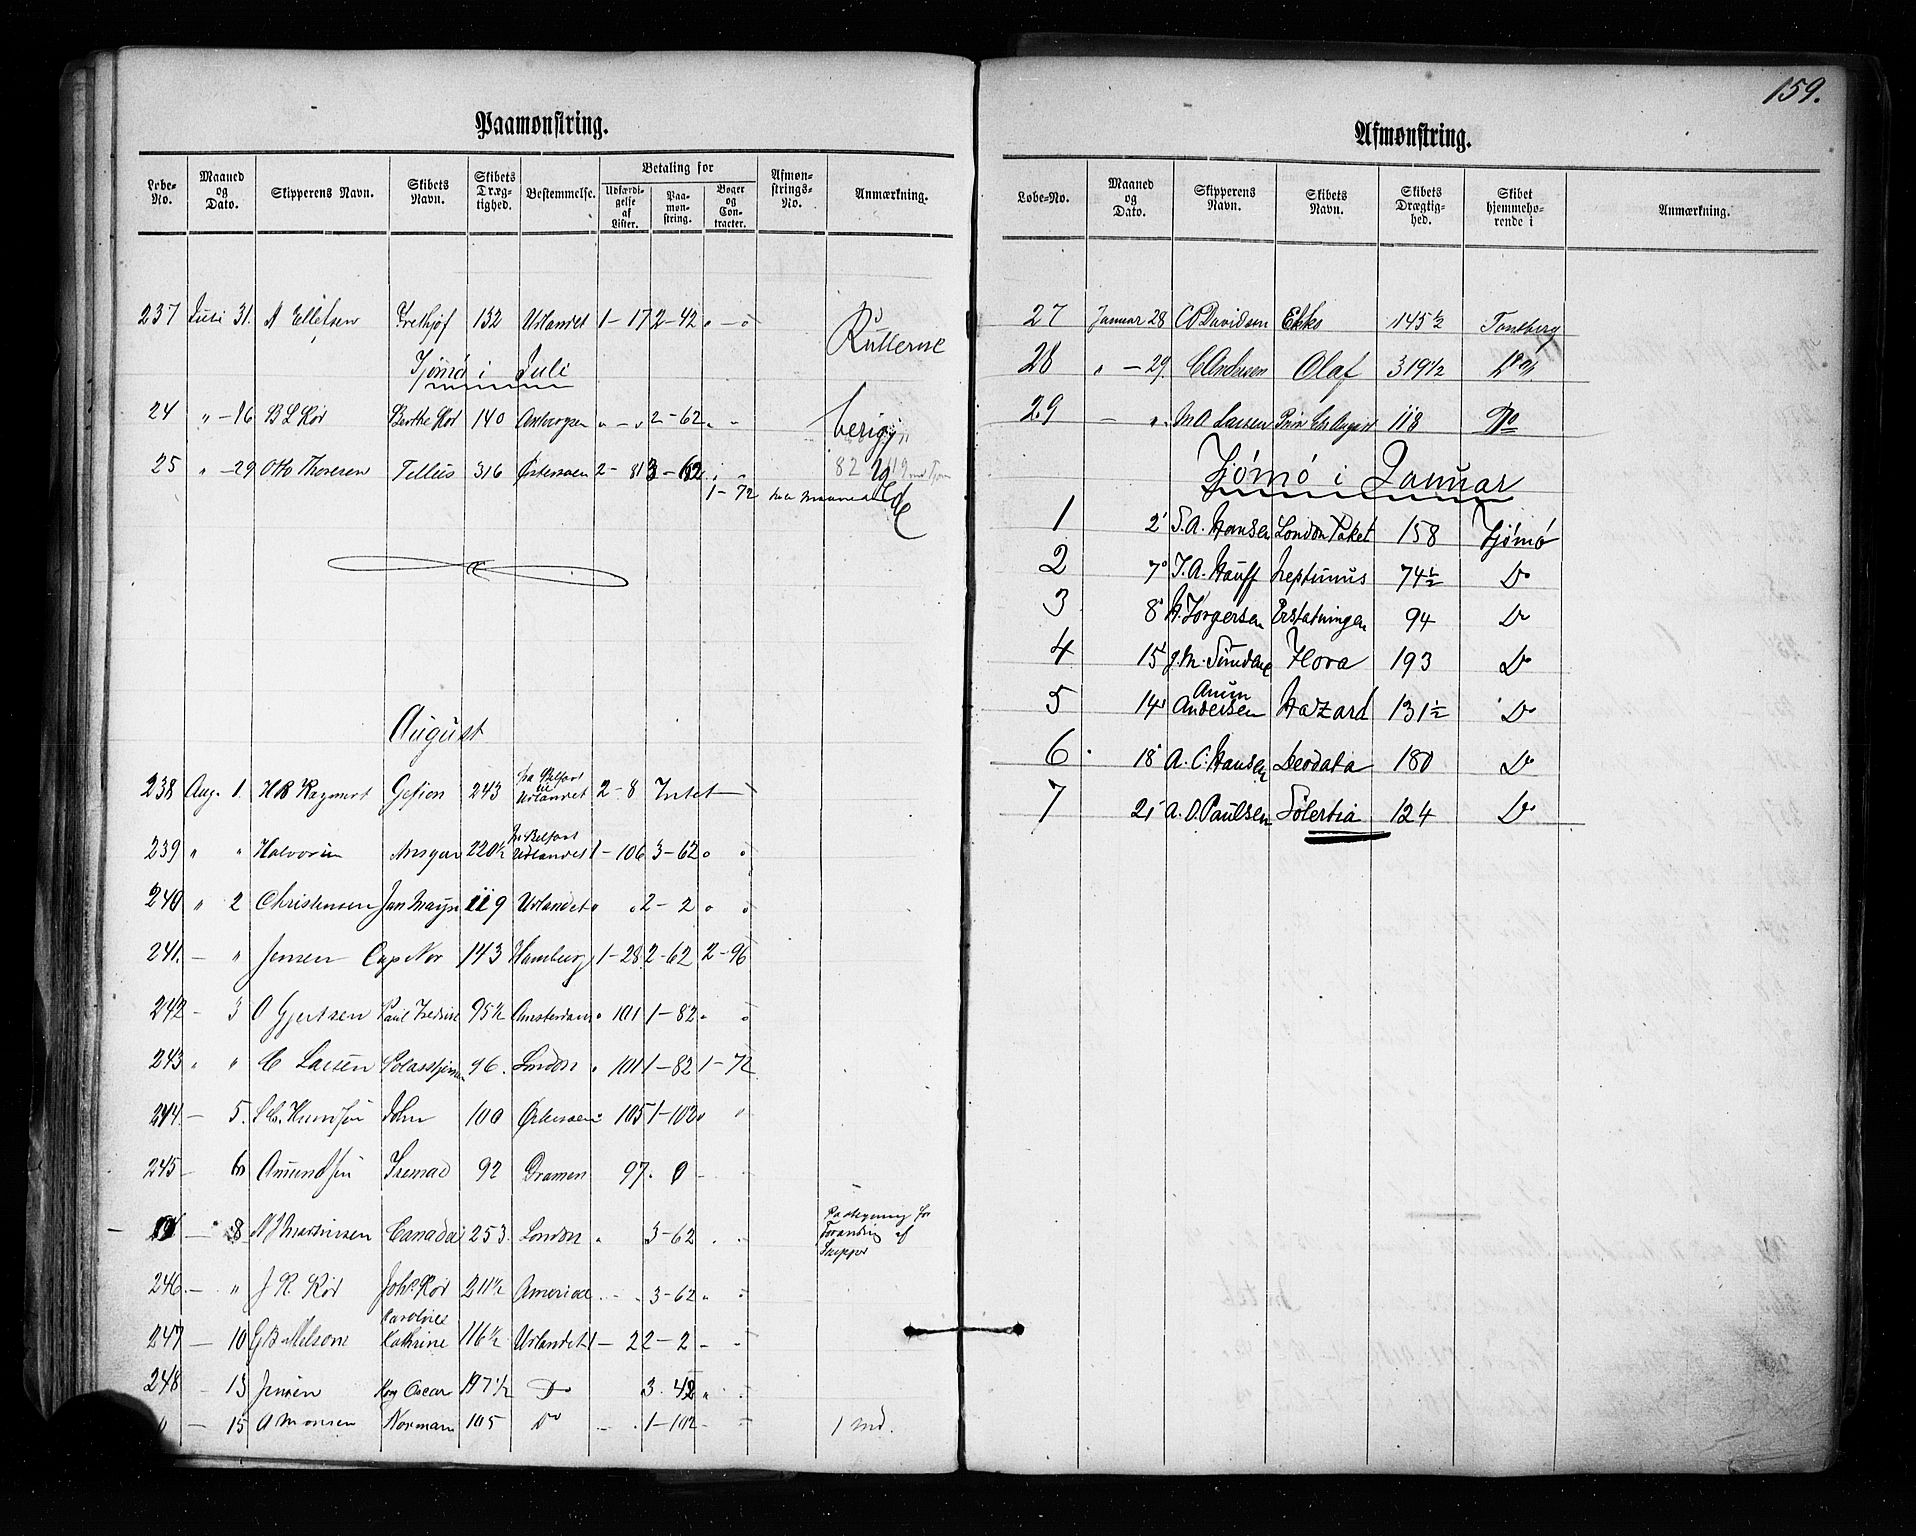 159.
Paamonstring.
Løbe-No. Maaned og Dato. Skipperens Navn. Skibets Navn. Skibets Drægtighed. Bestemmelse. Betaling for Udfærdigelse af Lister. Paamonstring. Bøger og Contracter. Afmonstrings-No. Anmærkning.
237 Juli 31. A Ellefsen 132 Udlandet 1-17 2-42 " - "
Tjømø i Juli
24 " -16 B L Rod Berthe Rod 140 " - " 2-62 " "
25 " -29 Otto Thoresen Tellus 316 Østersøen 2-81 3-62 " "
1-72
August
238 Aug. 1. H B Gefion 243 fra Belfast til Udlandet 2-8 Intet
239 " " Halvorsen Ansgar 220½ fra Belfast Udlandet 1-106 3-62 " "
240 " 2 Christensen Jan Mayn 119 Udlandet " " 2-2 " "
241. - " Jensen Cap Nor 143 Hamburg 1-28 2-62 2-96
242 - 3 O Gjertsen Paul Fredrik 95½ Amsterdam " 101 1-82 " "
243 " " C Larsen Polarstjernen 96. London " 101 1-82 1-72
244 - 5. John 100 Østersøen " 105 1-102 " "
245 - 6 Amundsen 92 Dramen 97. 0 - -
- 8 Martinsen Canada 253. London " 3-62 . . Paategning for Forandring af Skipper
246. - " J R. Rod Joh. Rod 211½ Amerika - - 3-62 " "
247 - 10 G B Melsom Caroline Kathrine 116½ Udlandet 1-2 2-2 - -
248 - 13 Jensen Kong Oscar 197½ Do 3. 42 " -
- 15 A Monsen Norman 105 Do - . 1-102 - - 1 md.
Afmonstring.
Løbe-No. Maaned og Dato. Skipperens Navn. Skibets Navn. Skibets Drægtighed. Skibet hjemmehørende i Anmærkning.
27 Januar 28 C Davidsen Ekko 145½ Tønsberg
28 " -29. C Andersen Olaf 319½ Do
29 - " M A Larsen Prin Chr August 118 Do
Tjømø i Januar
1 2' S. A. Hansen London Paket 158 Tjømø
2 7' J. A. Hauff Neptunus 74½ Do
3 8' H. Torgersen Erstatningen 94 Do
4 15' J. M. Sundene Flora 193 Do
5 14' Anun Andersen Hazard 131½ Do
6 18' A. C. Hansen Deodata 180 Do
7 21' A. O. Paulsen Solertia 124 Do